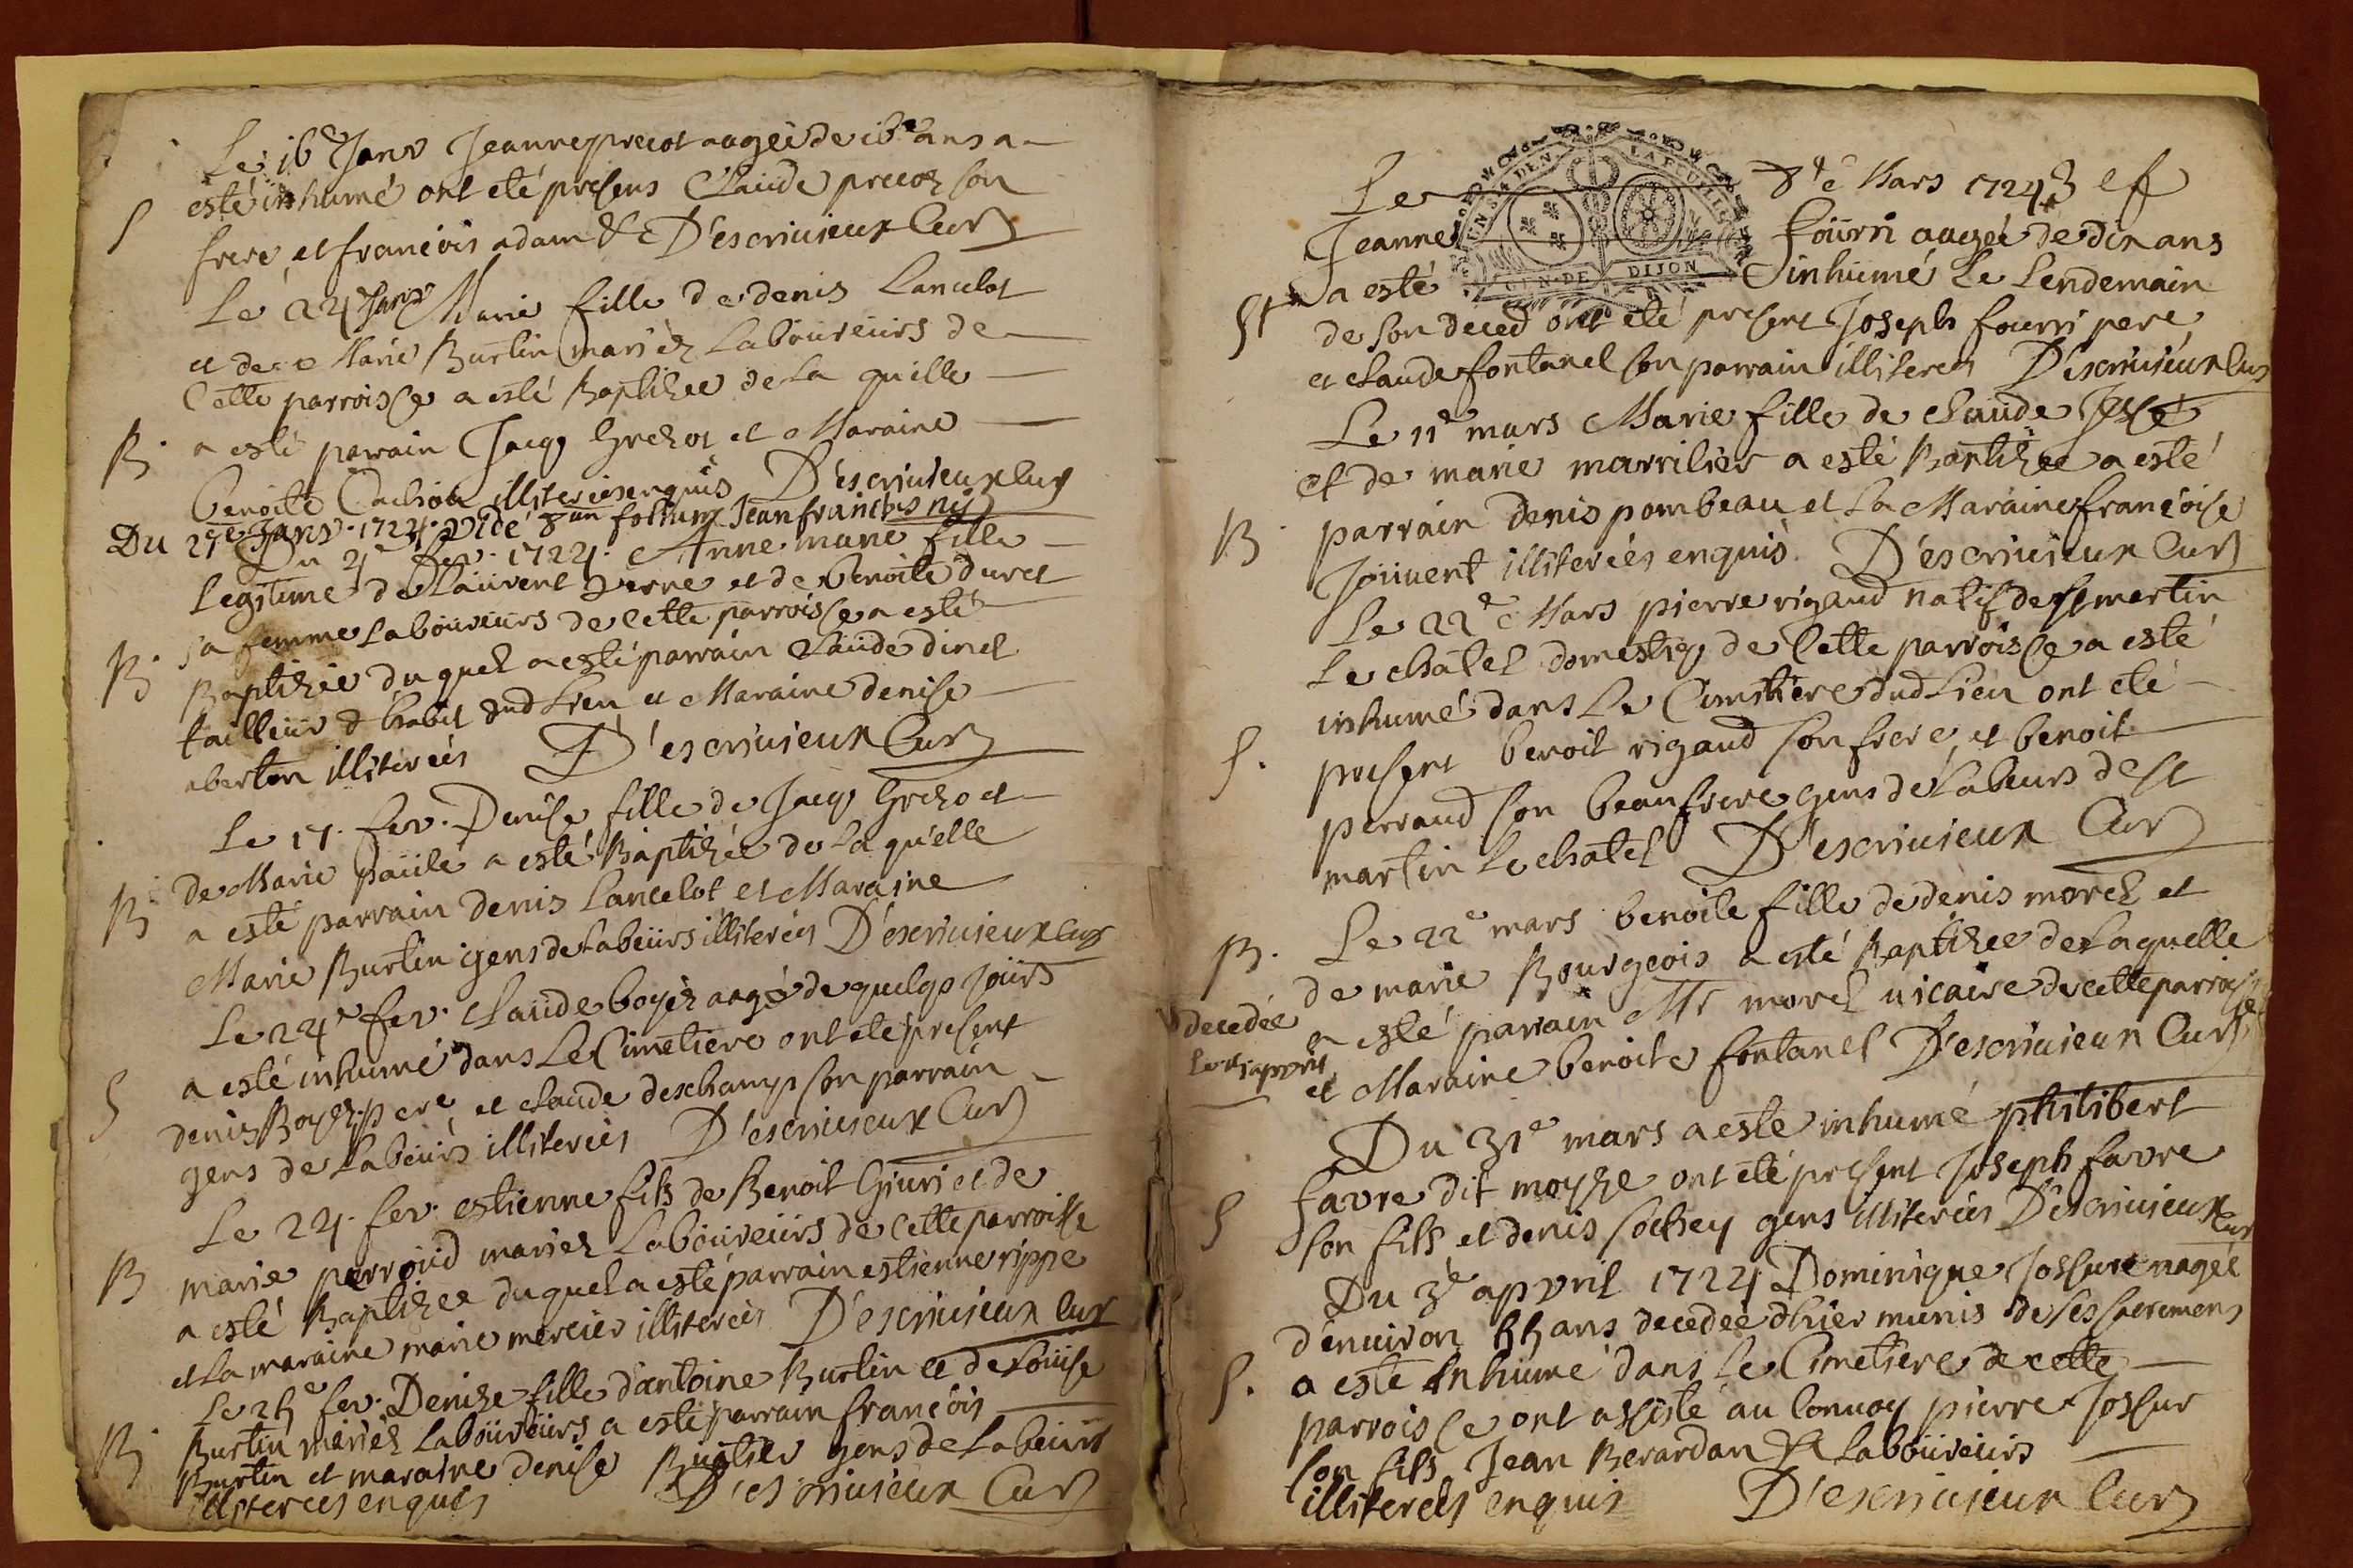 Le 16e Janv Jeanne precot aageé de 16e ans a
S esté inhumé ont eté presens Claude precot son
frere et francois adam &c D'escriuieux Curé
Le 24 Janv Marie fille de denis Lancelot
et de Marie Burtin mariéz Laboureurs de
Cette parroisse a esté Baptizee de La quelle
B. a esté parrain Jacq Grezot et Maraine
benoite illiterées enquis D'escriuieux Curé
Du 27e Janv. 1724. vide 8um folium Jean francois
Du 4e Fev. 1724. Anne marie fille
Legitime de Laurent et de benoite duret
B. sa femme Laboureurs de Cette parroisse a esté
Baptizée du quel a esté parrain Claude dinet
tailleur d habit dud Lieu et Maraine denise
aberton illiterées D'escriuieux Curé
Le 17. fev. Denise fille de Jacq Grezot et
B. de Marie paule a esté Baptizée de La quelle
a esté parrain denis Lancelot et Maraine
Marie Burtin gens de Labeurs illiterées D'escriuieux Curé
Le 24e fev. Claude boyéz aagé de quelqs Jours
S a esté inhumé dans Le Cimetiere ont eté present
denis Boyéz pere et claude deschamps son parrain
gens de Labeurs illiterées D'escriuieux Curé
Le 24. fev. estienne fils de Benoit et de
B marie perroud mariez Laboureurs de Cette parroisse
a esté Baptizee du quel a esté parrain estienne rippe
et La maraine marie mercier illiterées D'escriuieux Curé
Le 25e fev. Denize fille d'antoine Burtin et de Louise
B. Burtin mariéz Laboureurs a esté parrain françois
Burtin et maraine denise gens de Labeurs
illiterées enquis D'escriuieux Curé
GEN. DE DIJON
Le 8e Mars 1724
Jeanne fourri aageé de dix ans
St a esté inhumé Le Lendemain
de son deced ont eté present Joseph fourri pere
et claude fontanel son parrain illiterées D'escriuieux Curé
Le 11e mars Marie fille de claude
et de marie marrilier a esté Baptizee a esté
B. parrain denis pombeau et La Maraine françoise
Jouvent illiterées enquis D'escriuieux Curé
Le 22e Mars pierre rigaud natif de St martin
Le chatel domestiq de Cette parroisse a esté
inhumé dans Le Cimetiere dud Lieu ont eté
S. present benoit rigaud son frere et benoit
perraud son beaufrere gens de Labeurs de St
martin Le chatel D'escriuieux Curé
B. Le 22e mars benoite fille de denis morel et
de marie Bourgeois a esté Baptizee de Laquelle
decedée a esté parrain Mr morel uicaire de cette parroisse
et Maraine benoite fontanel D'escriuieux Curé
Du 31e mars a este inhumé philibert
S favre dit moyze ont eté present Joseph favre
son fils et denis sochey gens illiterées D'escriuieux Curé
Du 3e apvril 1724 Dominique Jossur aageé
d'enuiron 55 ans decedeé d'hier munis de ses sacremens
S. a esté Inhumé dans le Cimetiere de cette
parroisse ont assisté au Conuoy pierre Jossur
son fils Jean Berardan & Laboureurs
illiterées enquis D'escriuieux Curé